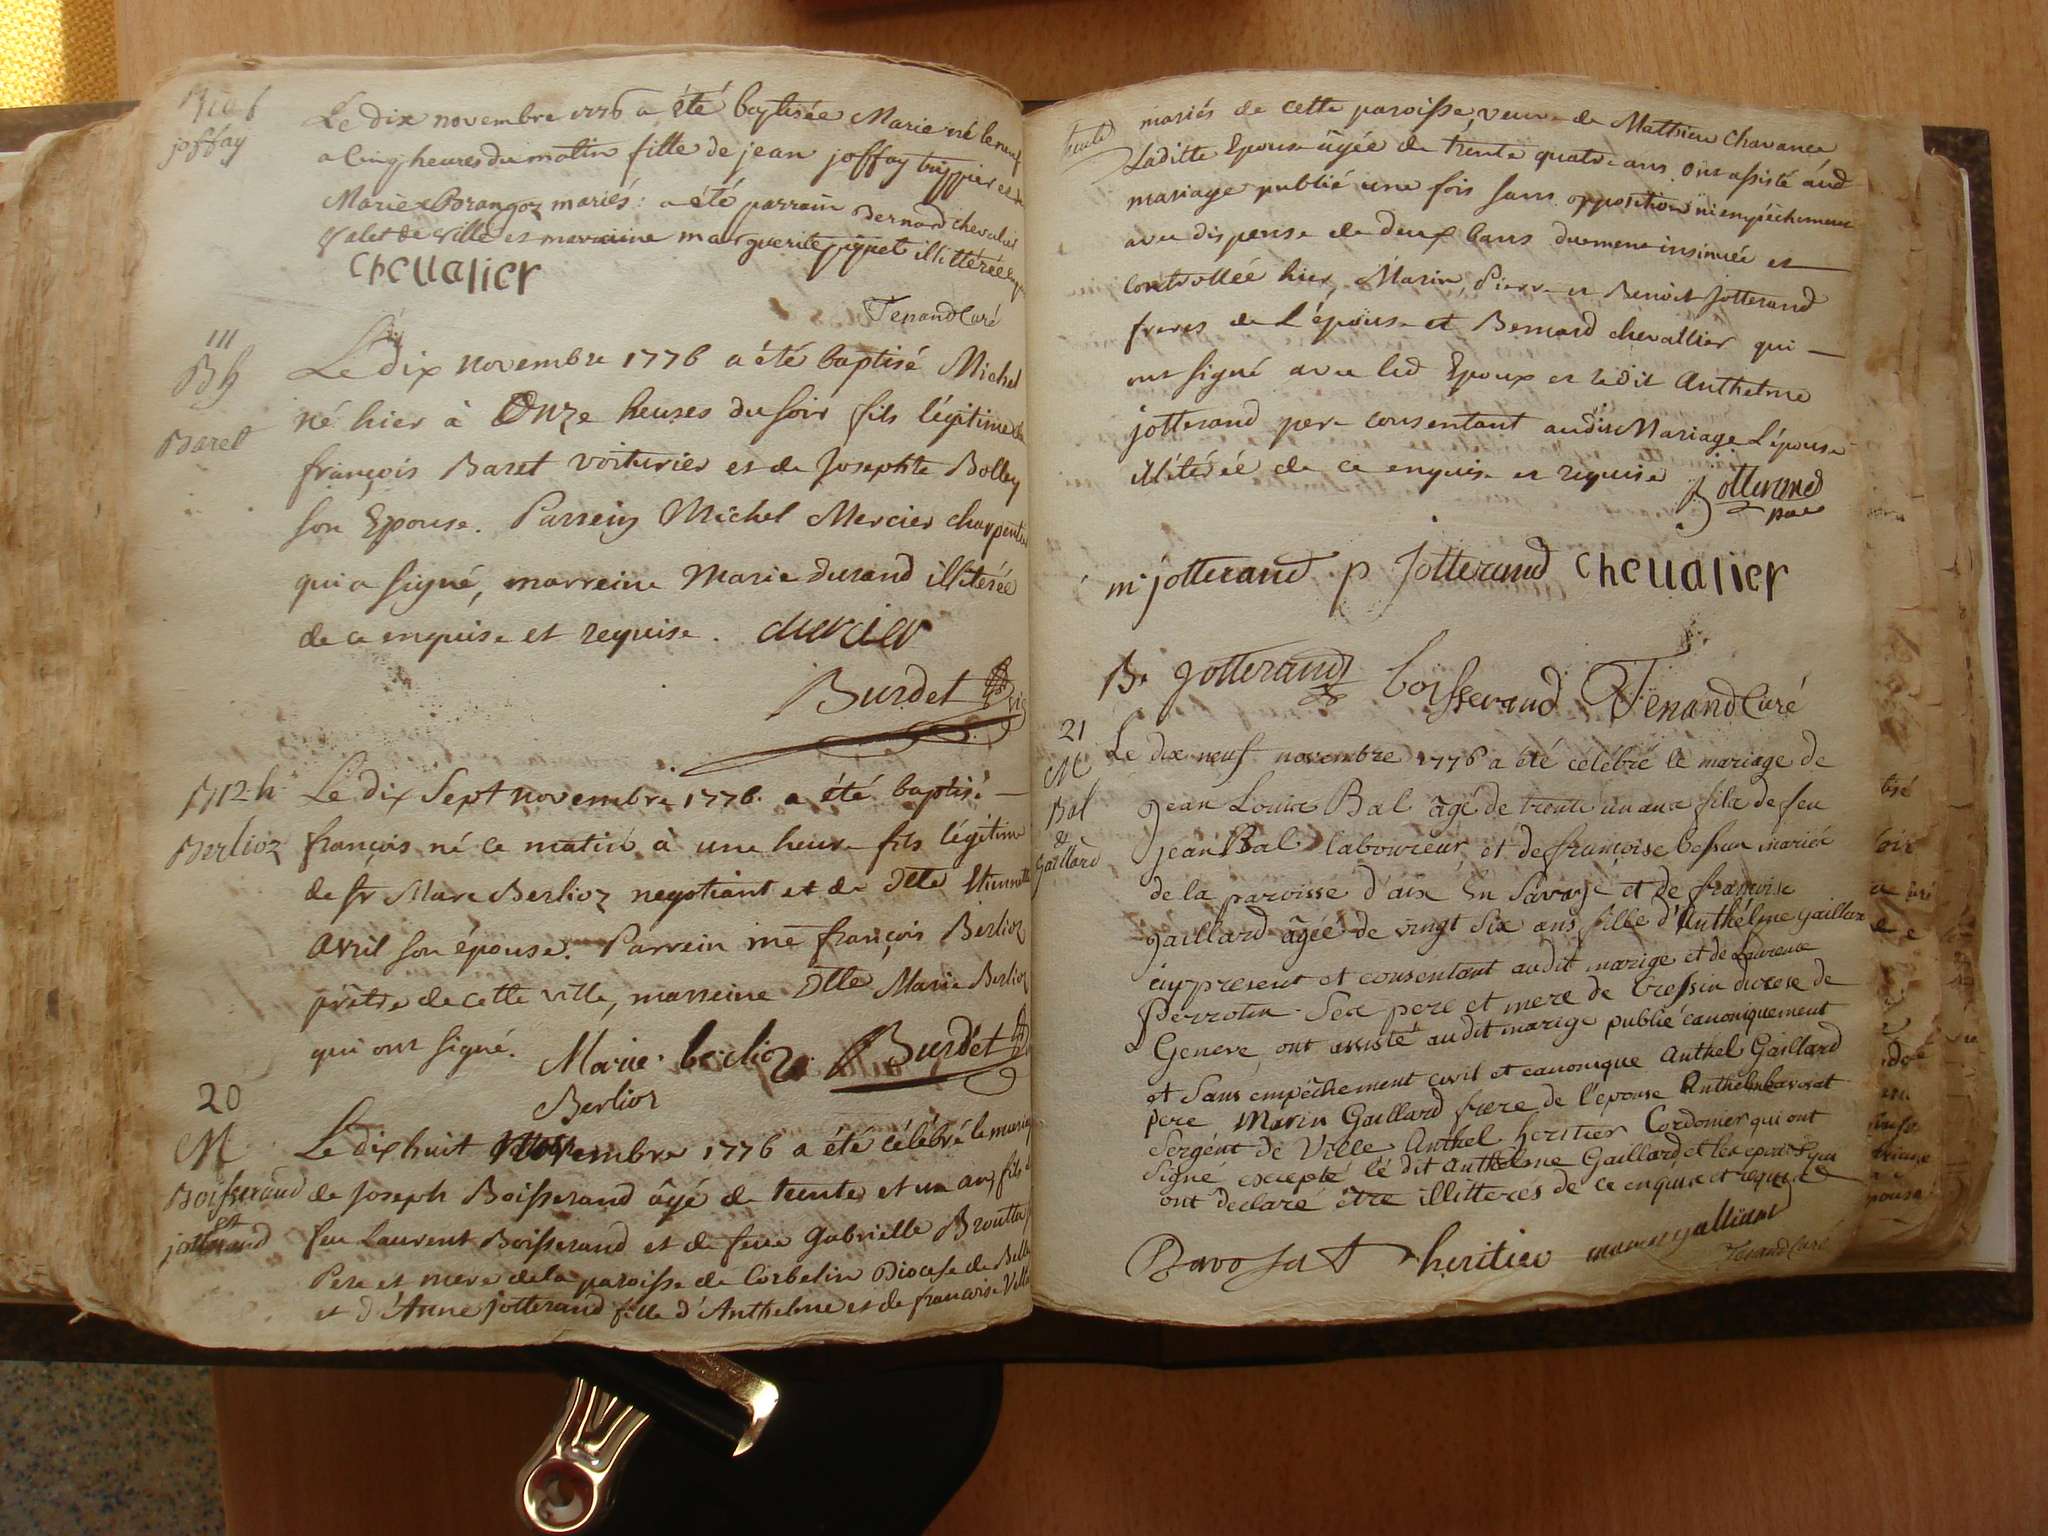 joffay
Le dix novembre 1776 a été baptisée Marie né le neuf
a cinq heures du matin fille de jean joffay
Marie mariés: a été parrain Bernard chevalier
valet de ville et marraine marguerite illitterée
Chevalier
Tenand Curé
111
Bh
Baret
Le dix novembre 1776 a été baptisé Michel
né hier à Onze heures du soir fils légitime de
françois Baret voiturier et de Josephte Bolley
son Epouse. Parrein Michel Mercier charpentier
qui a signé, marreine Marie durand illiterée
de ce enquise et requise. Mercier
Burdet vic
112 h
Berlioz
Le dix Sept novembre 1776. a été baptisé
françois né ce matin à une heure fils légitime
de sr Marc Berlioz negotiant et de Dlle Etiennette
Avril son épouse. Parrein me françois Berlioz
prêtre de cette ville, marreine Dlle Marie Berlioz
qui ont signé. Marie berlioz Burdet
Berlioz
20
M
Boisserand
et
jotterand
Le dix huit Novembre 1776 a été célébré le mariage
de Joseph Boisserand âgé de trente et un ans fils de
feu Laurent Boisserand et de feue Gabrielle
Pere et mere de la paroisse de Corbelin Diocese de
et d'Anne Jotterand fille d'Anthelme et de francoise
mariés de cette paroisse, veuve de Mathieu Chavance
Laditte Epouse âgée de trente quatre ans. Ont assisté aud
mariage publié une fois sans opposition ni empêchement
avec dispense de deux bans duement insinuée et
controllée hier, Marin, Pierre et Benoit Jotterand
freres de L'épouse et Bernard chevallier qui
ont signé avec led Epoux et ledit Anthelme
jotterand pere consentant audit Mariage L'épouse
illitérée de ce enquise et requise Jotterand
pere
m jotterand p Jotterand Chevalier
B. Jotterand boisserand Tenand Curé
21
M
Bal
&
gaillard
Le dix neuf novembre 1776 a été célébré le mariage de
Jean Louis Bal âgé de trente un ans fils de feu
jean Bal laboureur et de françoise bessan mariés
de la paroisse d'aix En Savoye et de françoise
gaillard âgée de vingt six ans fille d'Anthelme gaillard
icy present et consentant audit marige et de Laurence
Perrotin Ses pere et mere de bressin diocese de
Geneve, ont assisté audit marige publié canoniquement
et Sans empêchement civil et canonique Anthel Gaillard
pere Marin Gaillard frere de l'epouse Anthelme
Sergent de Ville Anthel heritier Cordonier qui ont
Signé excepté le dit anthelme Gaillard et les epoux qui
ont declaré être illitterés de ce enquis et requis
heritier Tenand Curé